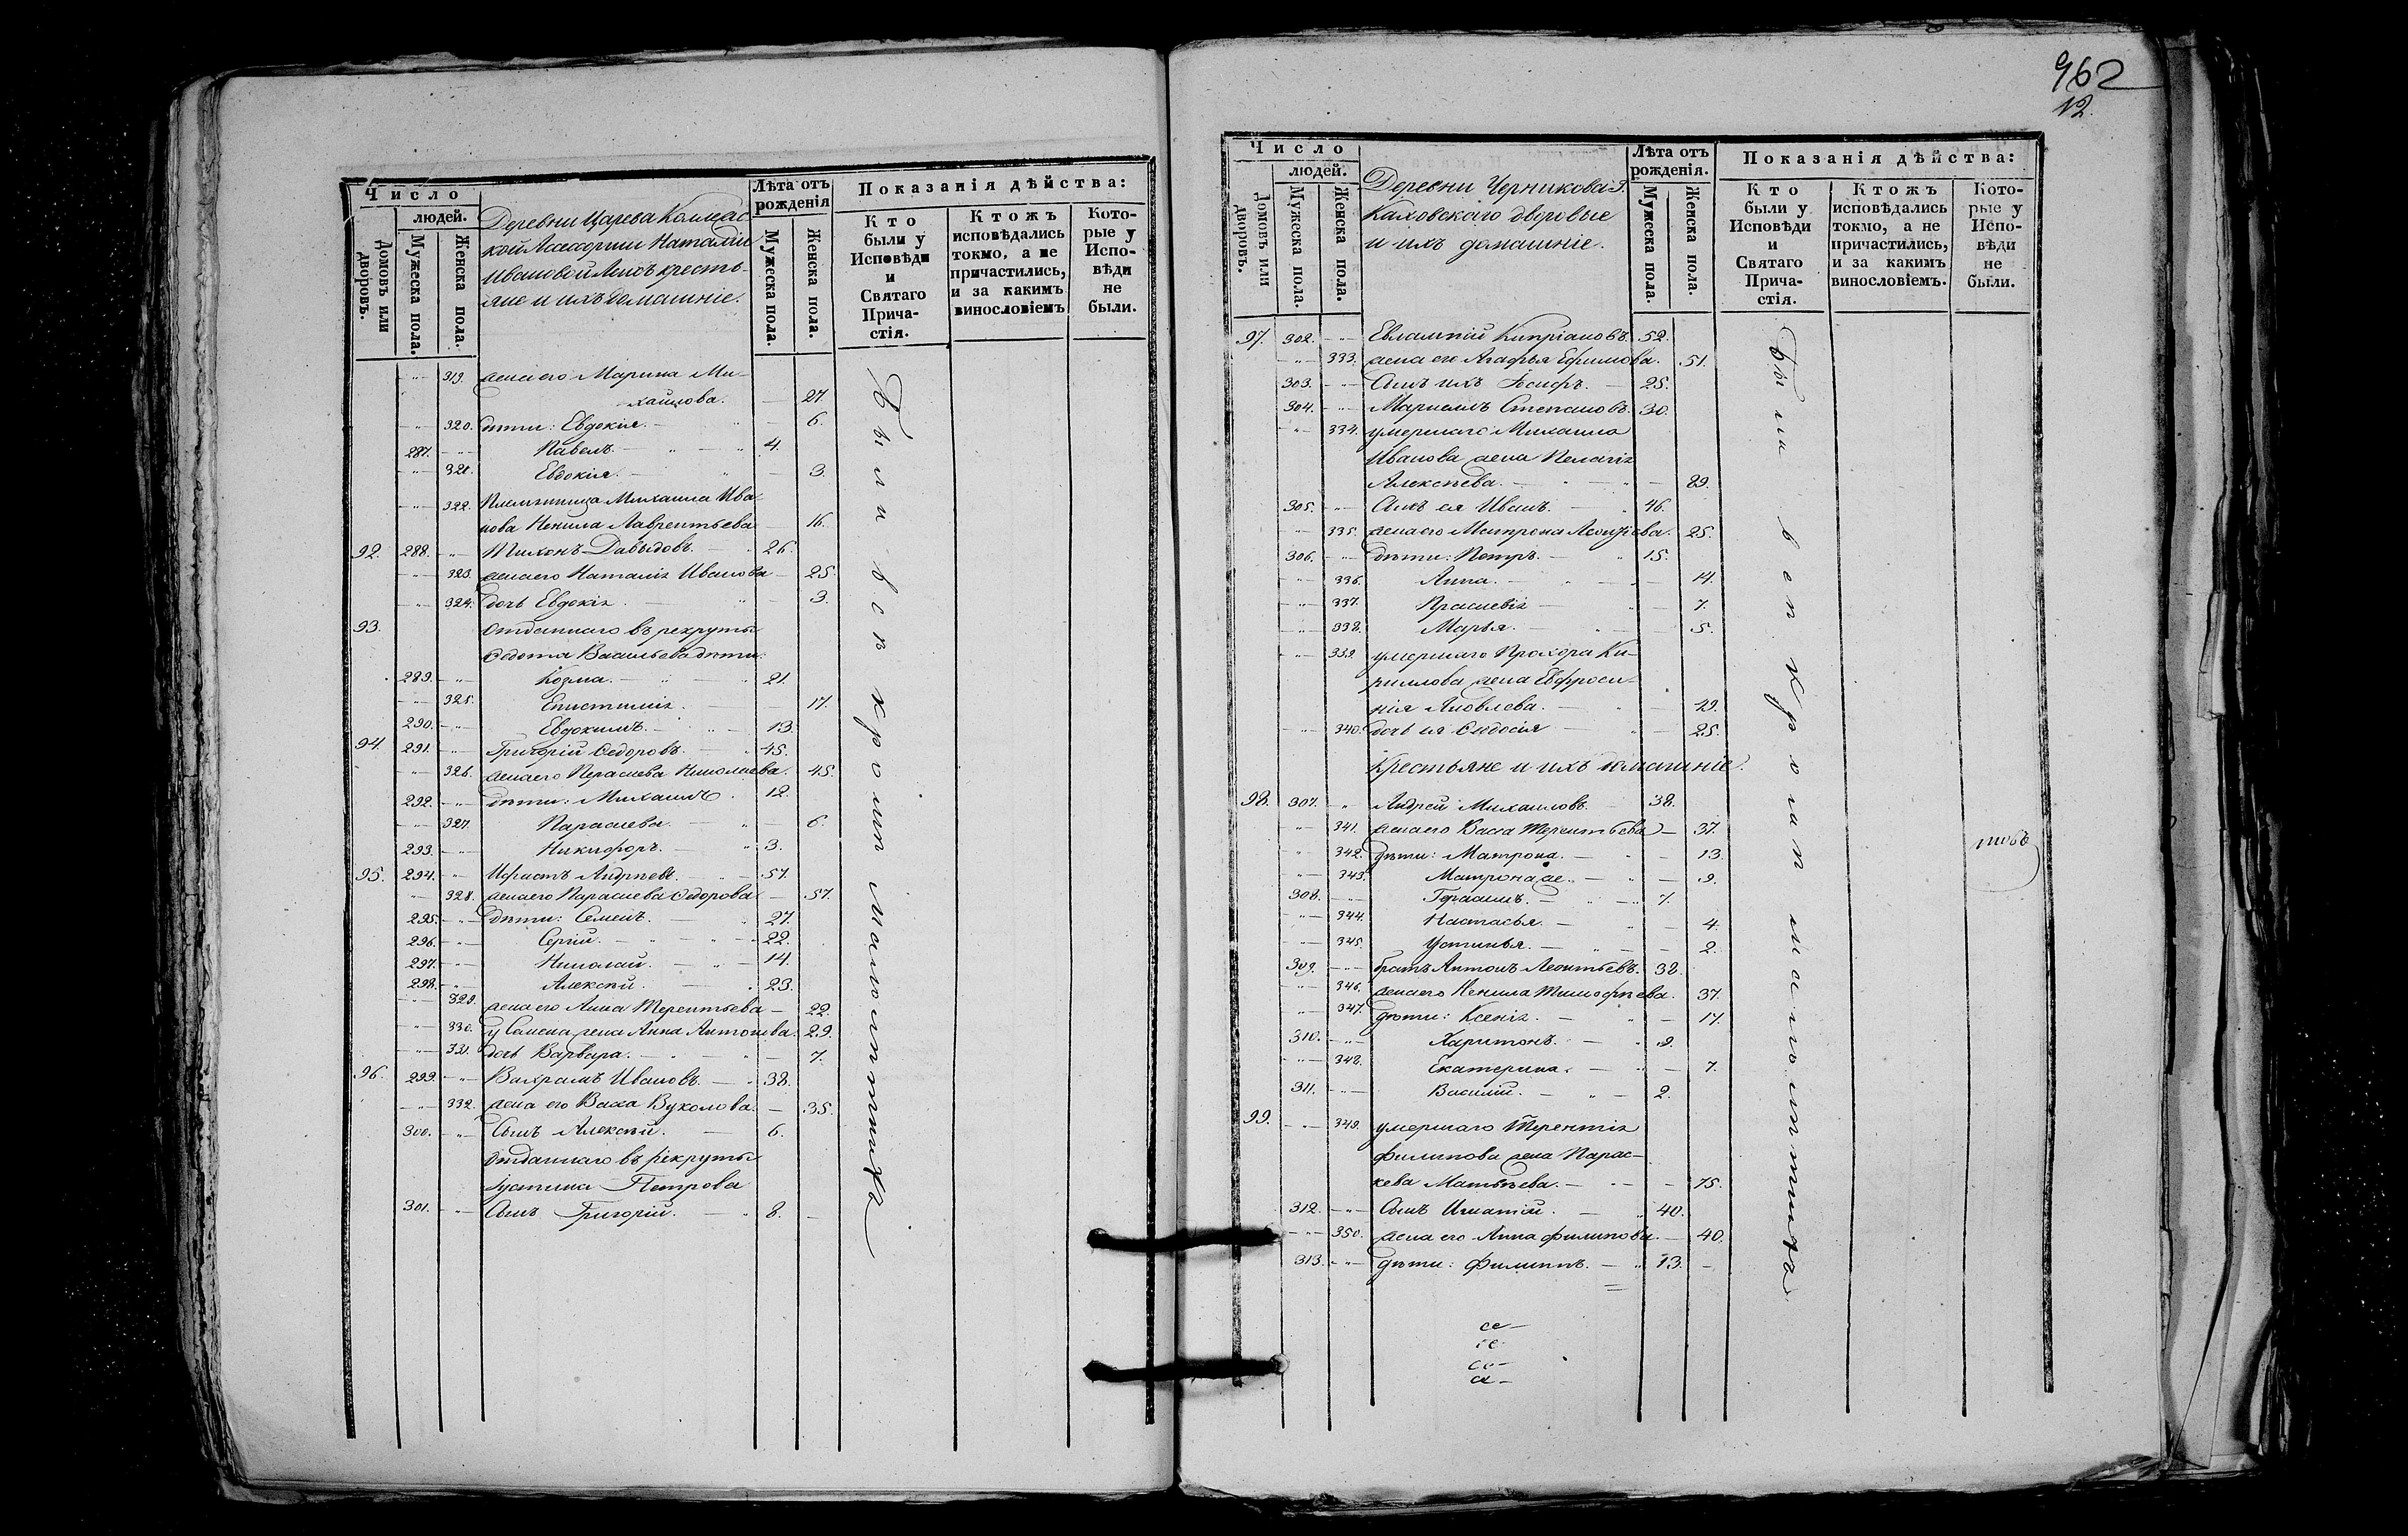 Число
людей.
Домовъ или дворовъ.
Мужеска пола.
Женска пола.
Деревни Царева
Наталіи
крестья-
не и ихъ домашніе.
Лѣта отъ рожденія
Мужеска пола.
Женска пола.
Показанія дѣйства:
Кто были у Исповѣди и Святаго Прича-стія.
Ктожъ исповѣдались токмо, а не причастились, и за какимъ винословіемъ
Кото-рые у Испо-вѣди не были.
319. жена его Марина Ми-
хайлова. 27.
320. дѣти: Евдокія. 6.
287. Павелъ. 4.
321. Евдокія. 3.
322. Племянница Михаила Ива-
нова Ненила Лаврентьева 16.
92. 288. Тихонъ Давыдовъ. 26.
323. жена его Наталія Иванова 25.
324. дочь Евдокія. 3.
93. Отданнаго въ рекруты
Федота Васильева дѣти:
289. Козма. 21.
325. Епистимія. 17.
290. Евдокимъ. 13.
94. 291. Григорій Федоровъ. 45.
326. жена его Параскева Николаева. 45.
292. дѣти: Михаилъ. 12.
327. Параскева. 6.
293. Никифоръ. 3.
95. 294. Андреевъ. 57.
328. жена его Параскева Федорова 57.
295. дѣти: Семенъ. 27.
296. Сергій. 22.
297. Николай. 14.
298. Алексѣй. 23.
329. жена его Анна Терентьева 22.
330. у Семена жена Анна Антонова. 29.
331. дочь Варвара. 7.
96. 299. Ивановъ. 38.
332. жена его Васса Вуколова. 35.
300. Сынъ Алексѣй. 6.
Отданнаго въ рекруты
Іустина Петрова
301. Сынъ Григорій. 8.
Были всѣ кромѣ малолѣтнихъ
962
12.
Число
людей.
Домовъ или дворовъ.
Мужеска пола.
Женска пола.
Деревни Черникова Г.
Каховскаго дворовые
и ихъ домашніе.
Лѣта отъ рожденія.
Мужеска пола.
Женска пола.
Показанія дѣйства:
Кто были у Исповѣди и Святаго Прича-стія.
Ктожъ исповѣдались токмо, а не причастились, и за какимъ винословіемъ.
Кото-рые у Испо-вѣди не были.
97. 302. Евлампій Кипріановъ. 52.
333. жена его Агафья Ефимова. 51.
303. Сынъ ихъ Іосифъ. 25.
304. Степановъ. 30.
334. умершаго Михаила
Иванова жена Пелагія
Алексѣева. 89.
305. Сынъ ея Иванъ. 46.
335. жена его Матрона 25.
306. дѣти: Петръ. 15.
336. Анна. 14.
337. Праскевія 7.
338. Марья. 5.
339. умершаго Прохора Ки-
риллова жена Евфроси-
нія Яковлева. 49.
340. дочь ея Федосія 25.
Крестьяне и ихъ домашніе.
98. 307. Андрей Михаиловъ. 38.
341. жена его Васса Терентьева 37.
342. дѣти: Матрона. 13.
343. Матрона же. 9.
308. Герасимъ. 7.
344. Настасья. 4.
345. Устинья. 2.
309. братъ Антонъ Леонтьевъ. 38.
346. жена его Ненила Тимофѣева. 37.
347. дѣти: Ксенія. 17.
310. Харитонъ. 9.
348. Екатерина. 7.
311. Василій. 2.
99. 349. умершаго Терентія
Филипова жена Парас-
кева Матвѣева. 75.
312. Сынъ Игнатій. 40.
350. жена его Анна Филипова. 40.
313. дѣти: Филиппъ. 13.
Были всѣ кромѣ малолѣтнихъ